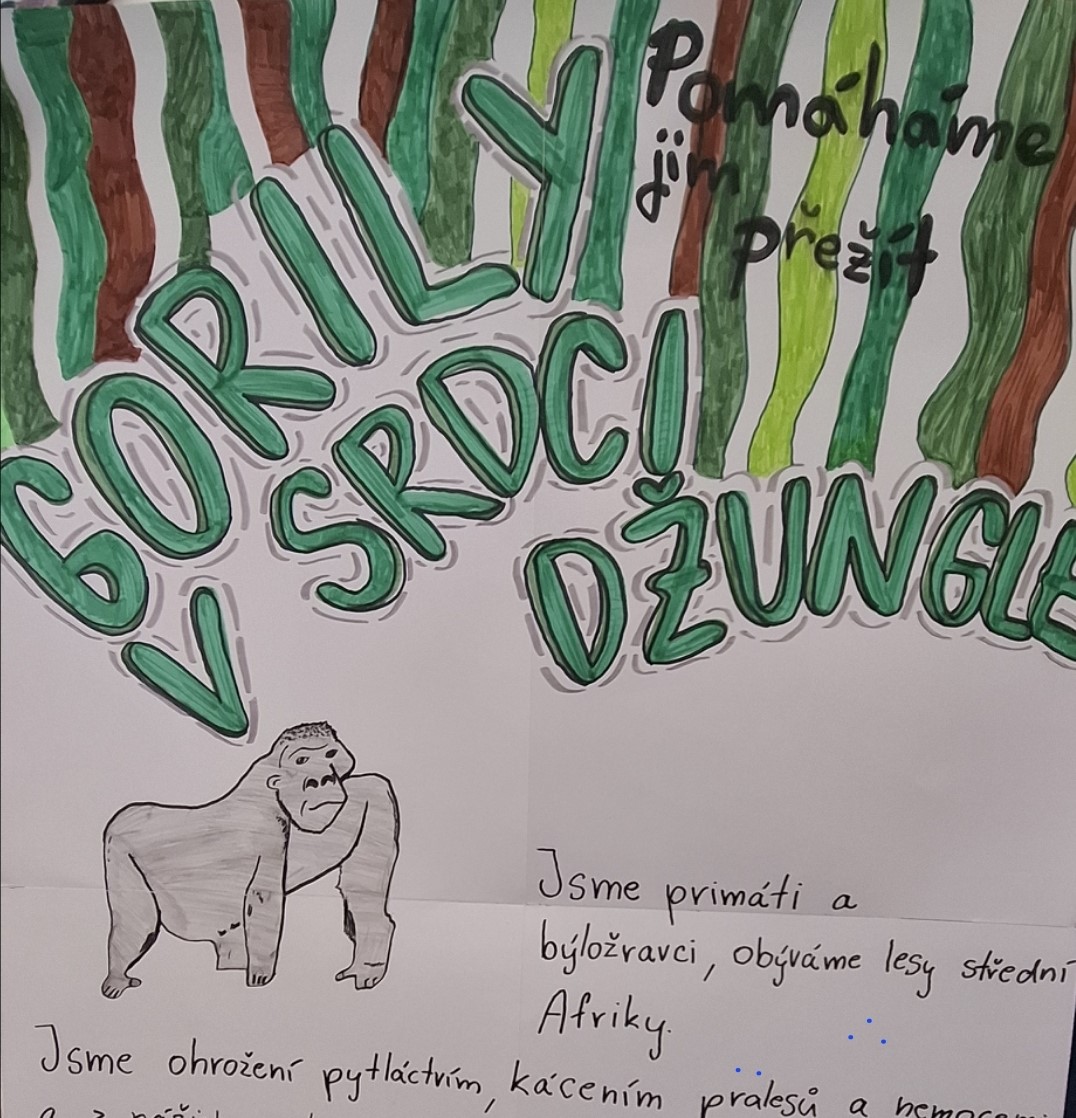 GORILY
V SRDCI
DŽUNGLE
Pomáháme
jim
přežít
Jsme primáti a
býložravci, obýváme lesy střední
Afriky.
Jsme ohrožení pytláctvím, kácením pralesů a